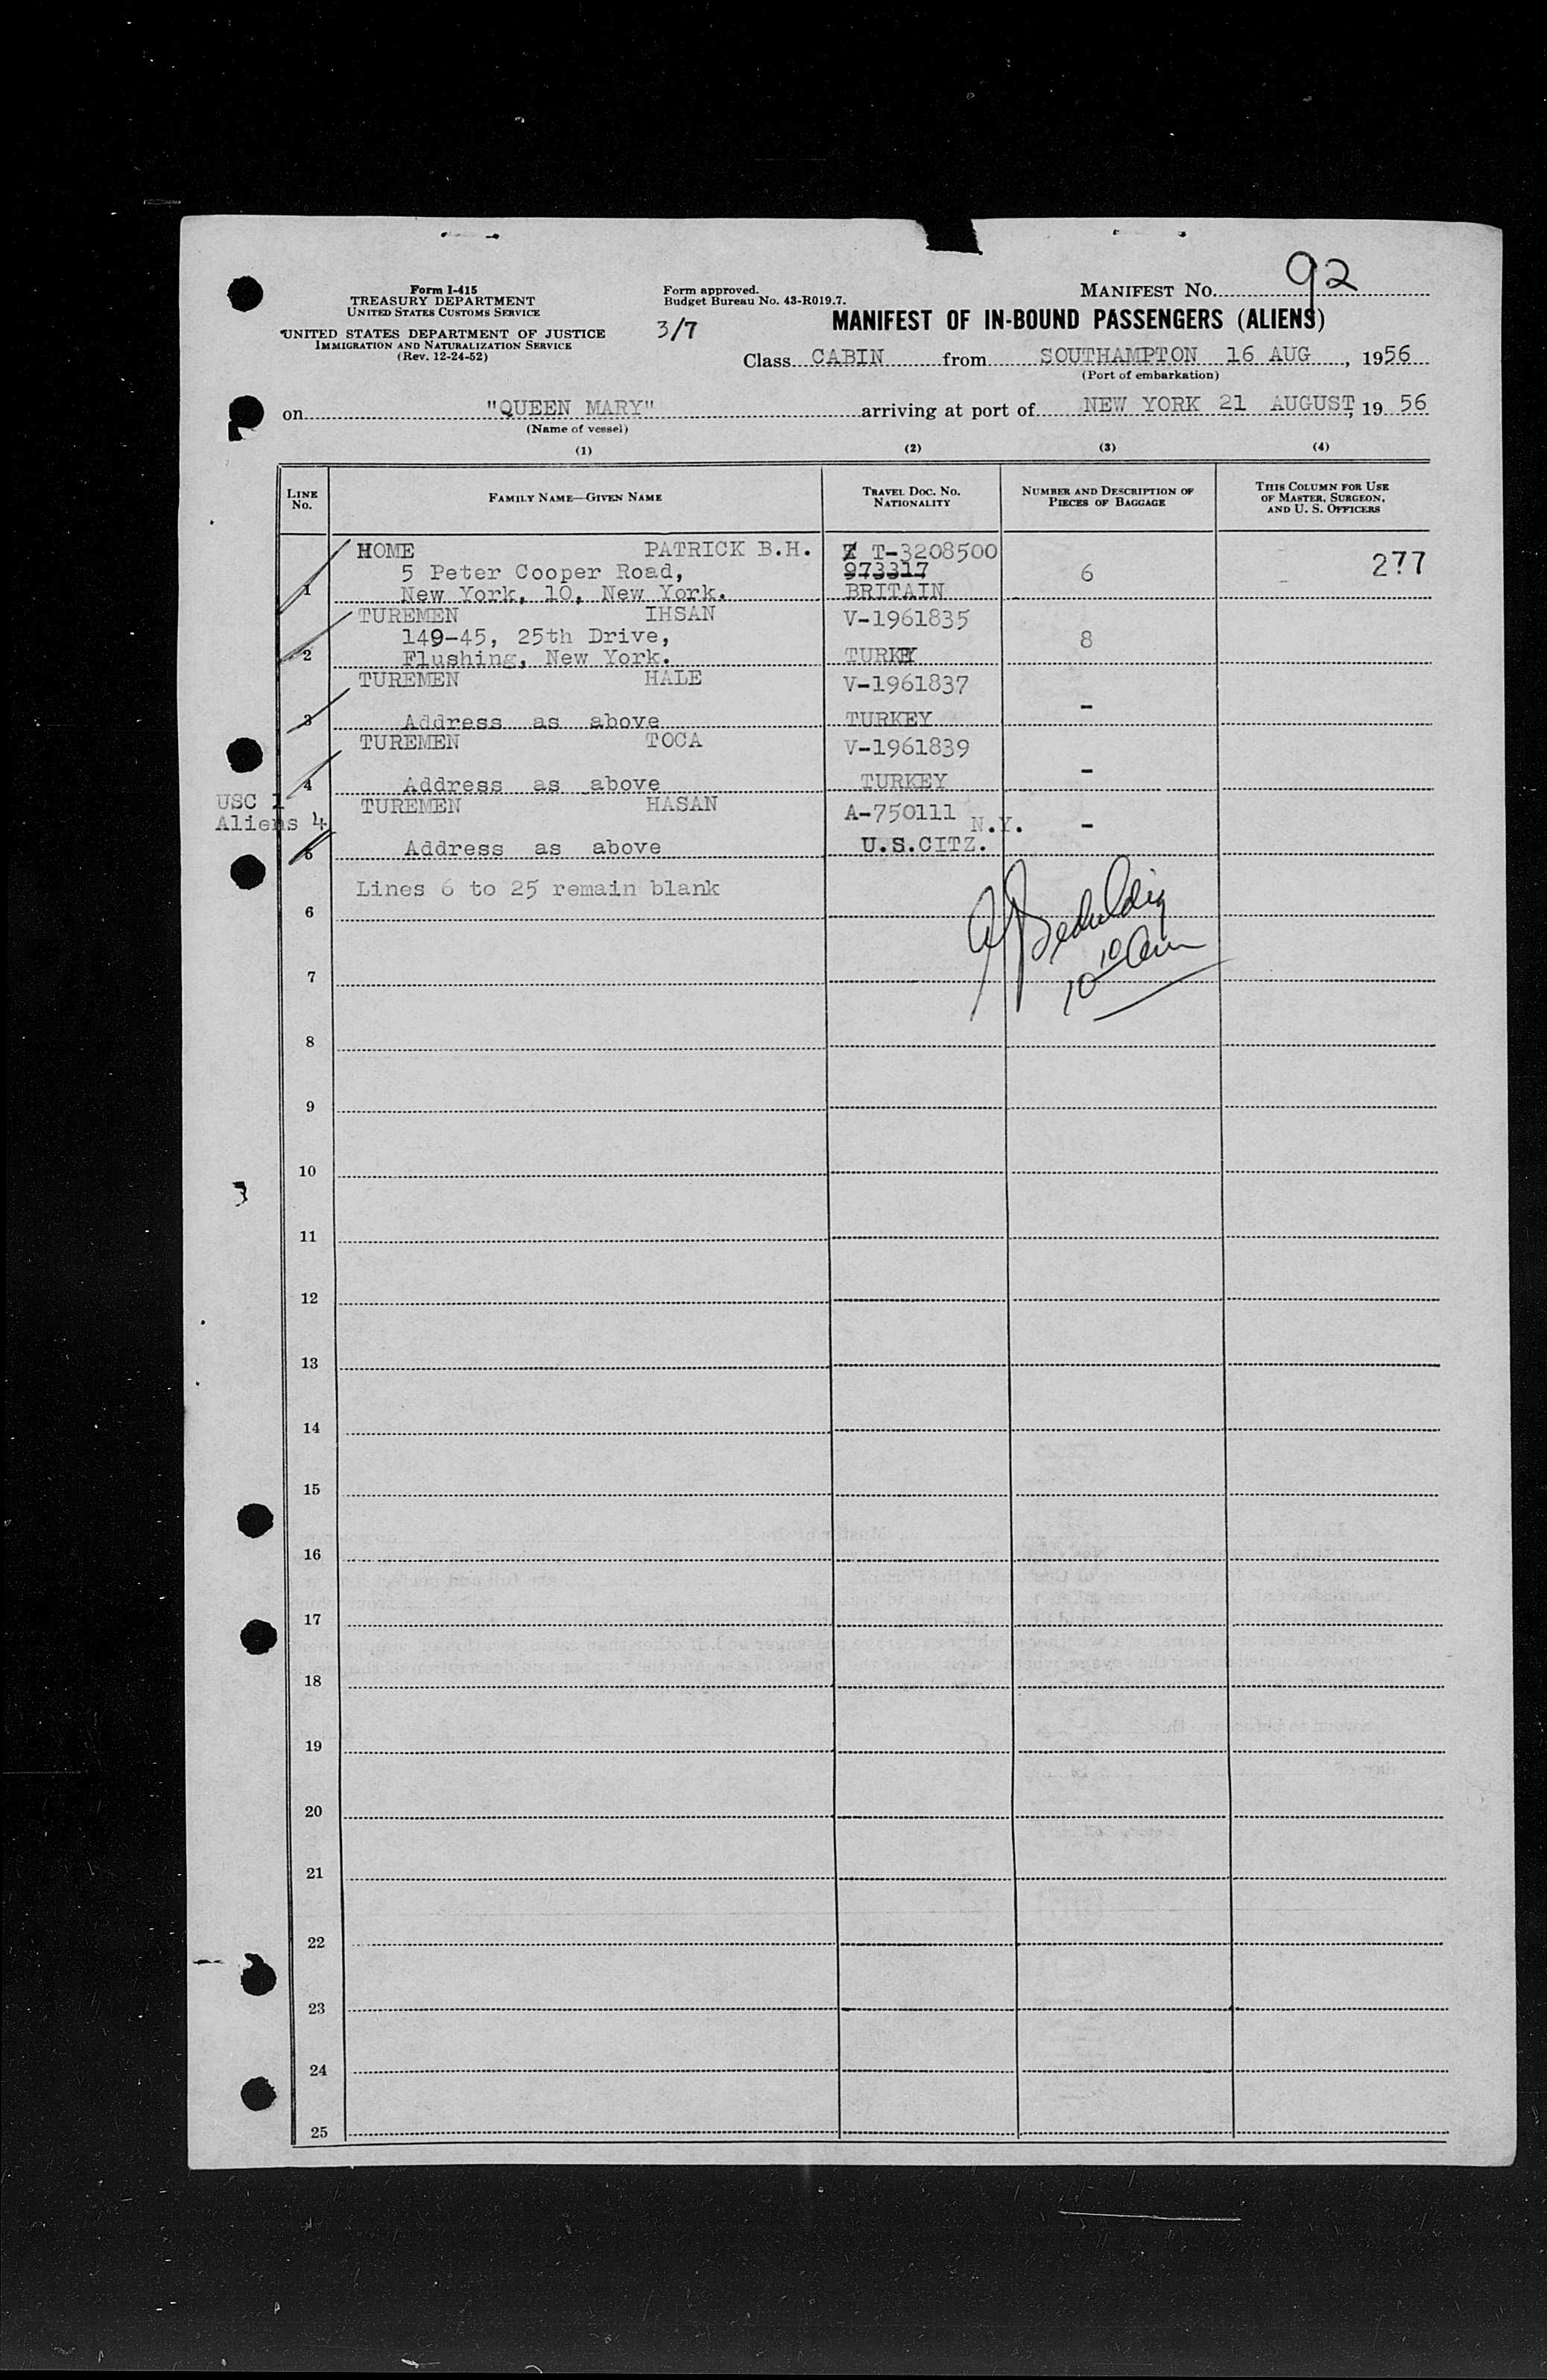 92
Form I-415
TREASURY DEPARTMENT
UNITED STATES CUSTOMS SERVICE
UNITED STATES DEPARTMENT OF JUSTICE
IMMIGRATION AND NATURALIZATION SERVICE
(Rev. 12-24-52)
Form approved.
Budget Bureau No. 43-R019.7.
3/7
MANIFEST NO.
MANIFEST OF IN-BOUND PASSENGERS (ALIENS)
Class CABIN from SOUTHAMPTON 16 AUG, 1956
(Port of embarkation)
on "QUEEN MARY" arriving at port of NEW YORK 21 AUGUST, 19 56
(Name of vessel)
(1) (2) (3) (4)
LINE No. FAMILY NAME—GIVEN NAME TRAVEL DOC. NO. NATIONALITY NUMBER AND DESCRIPTION OF PIECES OF BAGGAGE THIS COLUMN FOR USE OF MASTER, SURGEON, AND U. S. OFFICERS
HOME PATRICK B.H. T-3208500 277
5 Peter Cooper Road, 973317 6
1 New York, 10, New York. BRITAIN
TUREMEN IHSAN V-1961835
149-45, 25th Drive, 8
2 Flushing, New York. TURKEY
TUREMEN HALE V-1961837
-
3 Address as above TURKEY
TUREMEN TOCA V-1961839
-
4 Address as above TURKEY
USC 1 TUREMEN HASAN A-750111
Aliens 4 N.Y. -
5 Address as above U.S.CITZ.
Lines 6 to 25 remain blank
6
10 10 am
7
8
9
10
11
12
13
14
15
16
17
18
19
20
21
22
23
24
25